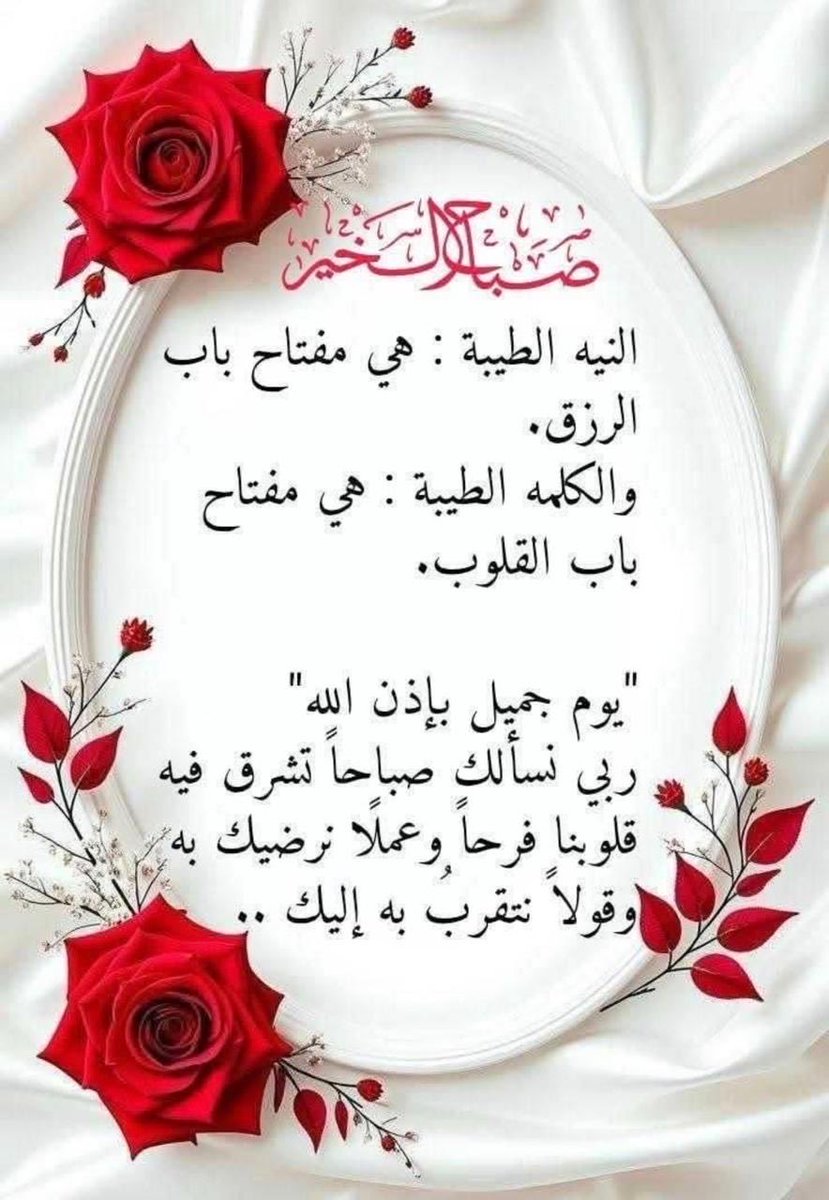 صباح الخير
النيه الطيبة : هي مفتاح باب
الرزق.
والكلمه الطيبة : هي مفتاح
باب القلوب.
"يوم جميل بإذن الله"
ربي نسألك صباحاً تشرق فيه
قلوبنا فرحاً وعملًا نرضيك به
وقولاً نتقربُ به إليك ..